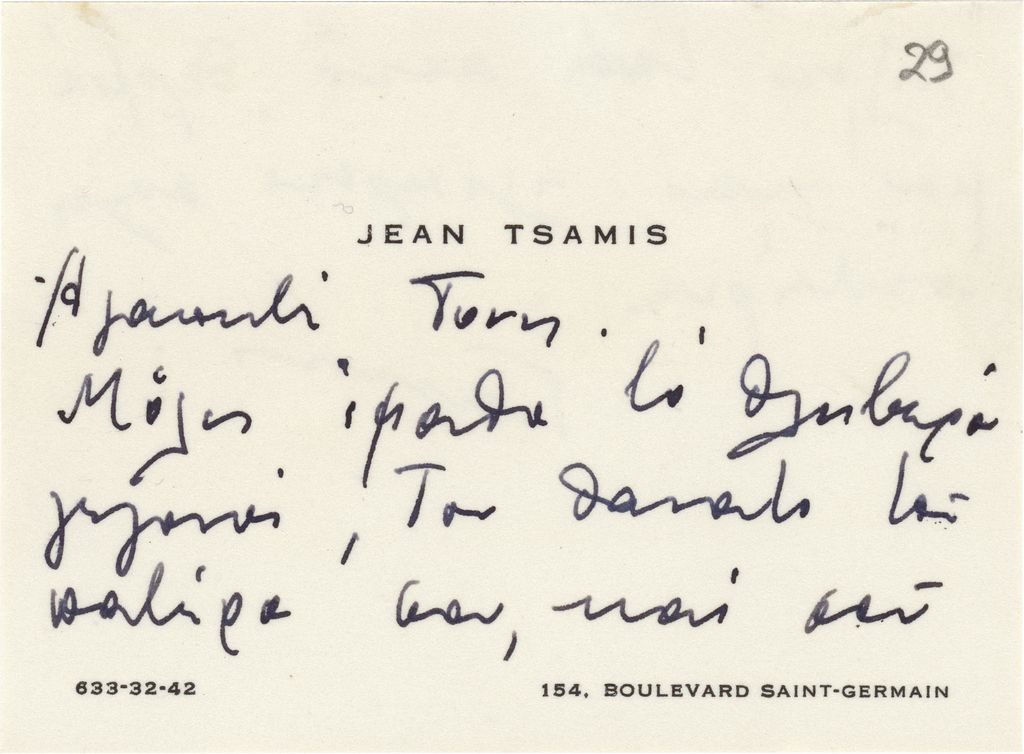 29
JEAN TSAMIS
Ἀγαπητὲ Τόνη.
Μόλις ἔμαθα τὸ θλιβερὸ
γεγονός, τον θανατο τοῦ
πατέρα σου, καὶ σοῦ
633-32-42
154, BOULEVARD SAINT-GERMAIN